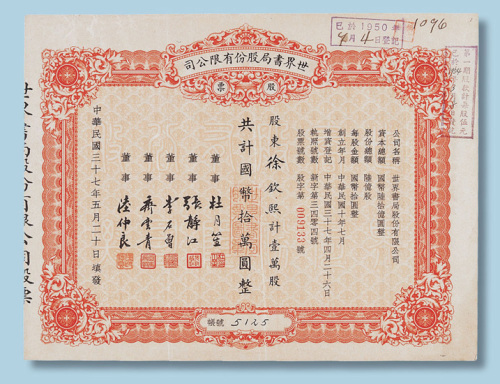 世界書局股份有限公司
股票
公司名稱 世界書局股份有限公司
資本總額 國幣陸拾億圓整
股份總額 陸億股
每股金額 國幣拾圓整
創立年月 中華民國十年七月
增資登記 中華民國三十七年四月二十六日
執照號數 設字第三四零四號
股票號數 股字第 009133 號
股東徐欽熙計壹萬股
共計國幣拾萬圓整
董事 杜月笙
董事 張靜江
董事 李石曾
董事 齊雲青
董事 陸仲良
中華民國三十七年五月二十日填發
帳號 5125
1950年
月4日登記
1096